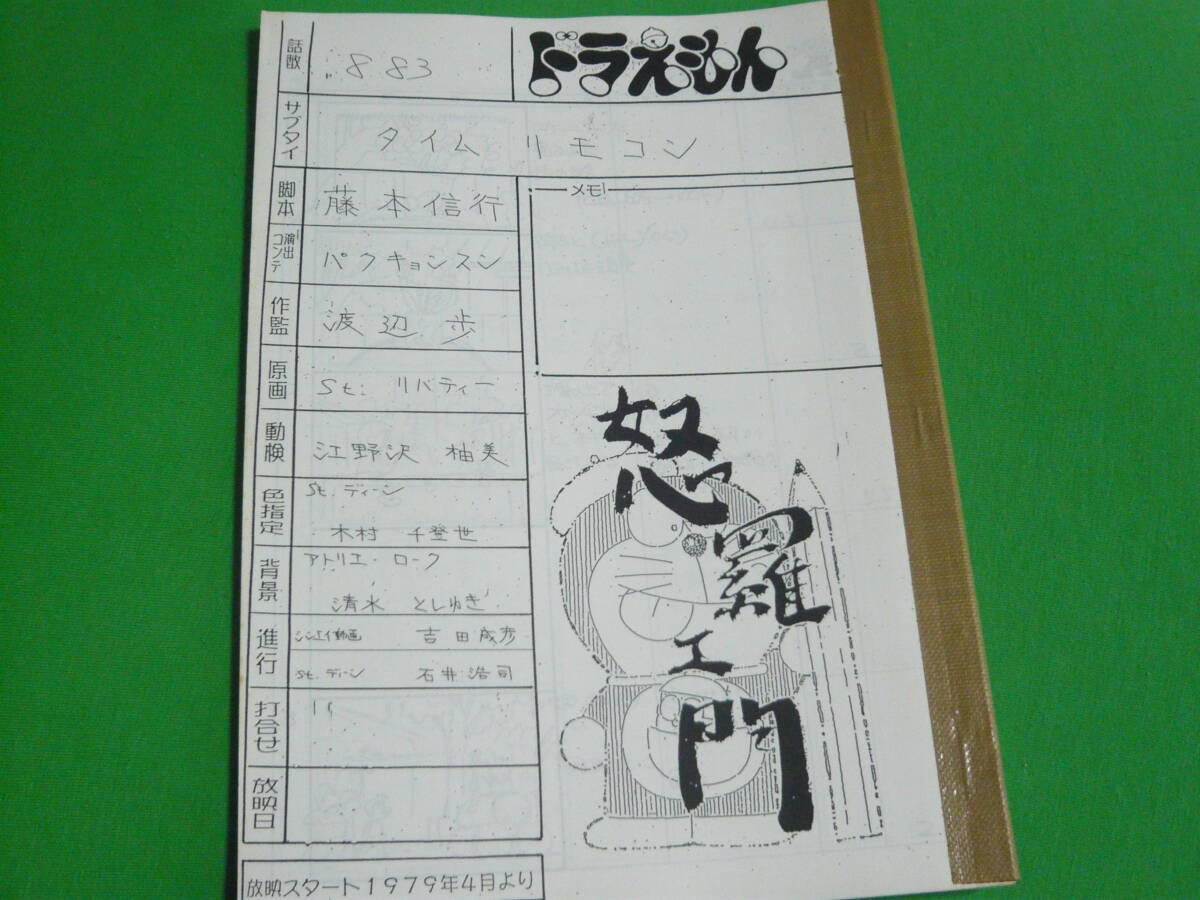 話数
883
ドラえもん
サブタイ
タイムリモコン
脚本
藤本信行
演出
コンテ
パクキョンスン
作監
渡辺 歩
原画
St. リバティー
動検
江野沢 柚美
色指定
St. ディーン
木村 千登世
背景
アトリエ・ローク
清水 としゆき
進行
シンエイ動画 吉田成彦
St. ディーン 石井浩司
打合せ
放映日
メモ
怒羅エ門
放映スタート1979年4月より